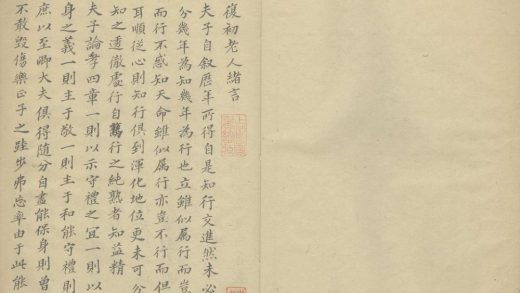 復初老人緒言
夫子自叙歷年所得自是知行交進然未必
分幾年為知幾年為行也立雖似属行而豈
而行不惑知天命雖似属行亦豈不行而但
耳順從心則知行俱到渾化地位更未可分
知之透徹處行自篤行之純熟者知益精
夫子論孝四章一則以示守禮之宜一則以
身之義一則主于敬一則主于和能守禮則
庶以至卿大夫俱得随分自盡能保身則曾
不敢毀傷樂正子之跬步弗忘率由于此能